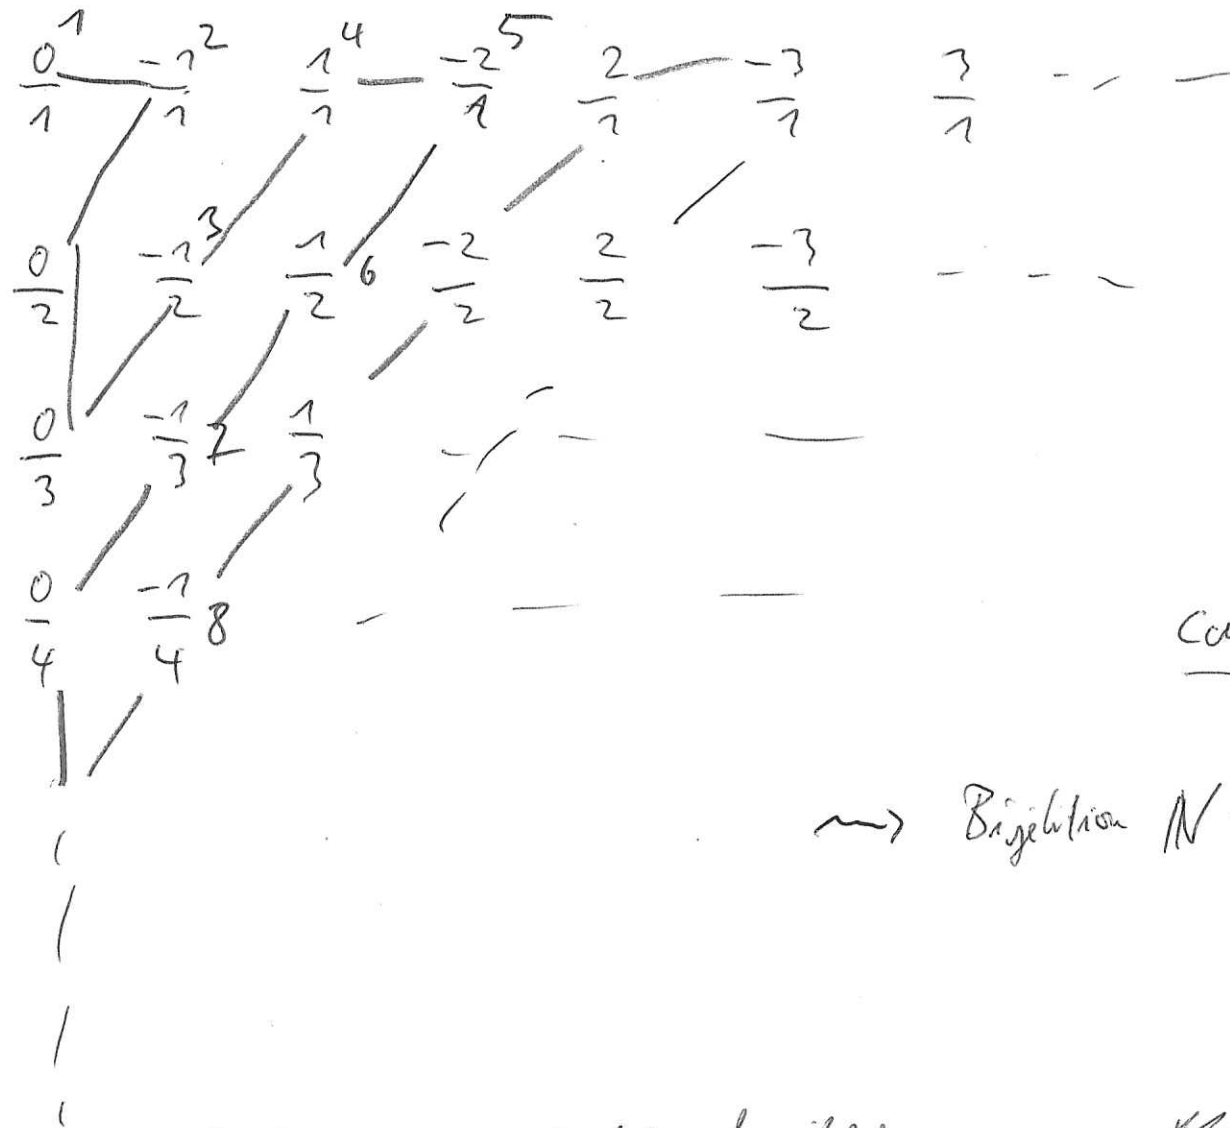 0/1 ¹ -1/1 ² 1/1 ⁴ -2/1 ⁵ 2/1 -3/1 3/1
0/2 -1/2 ³ 1/2 6 -2/2 2/2 -3/2
0/3 -1/3 7 1/3
0/4 -1/4 8
⇝ Bijektion ℕ